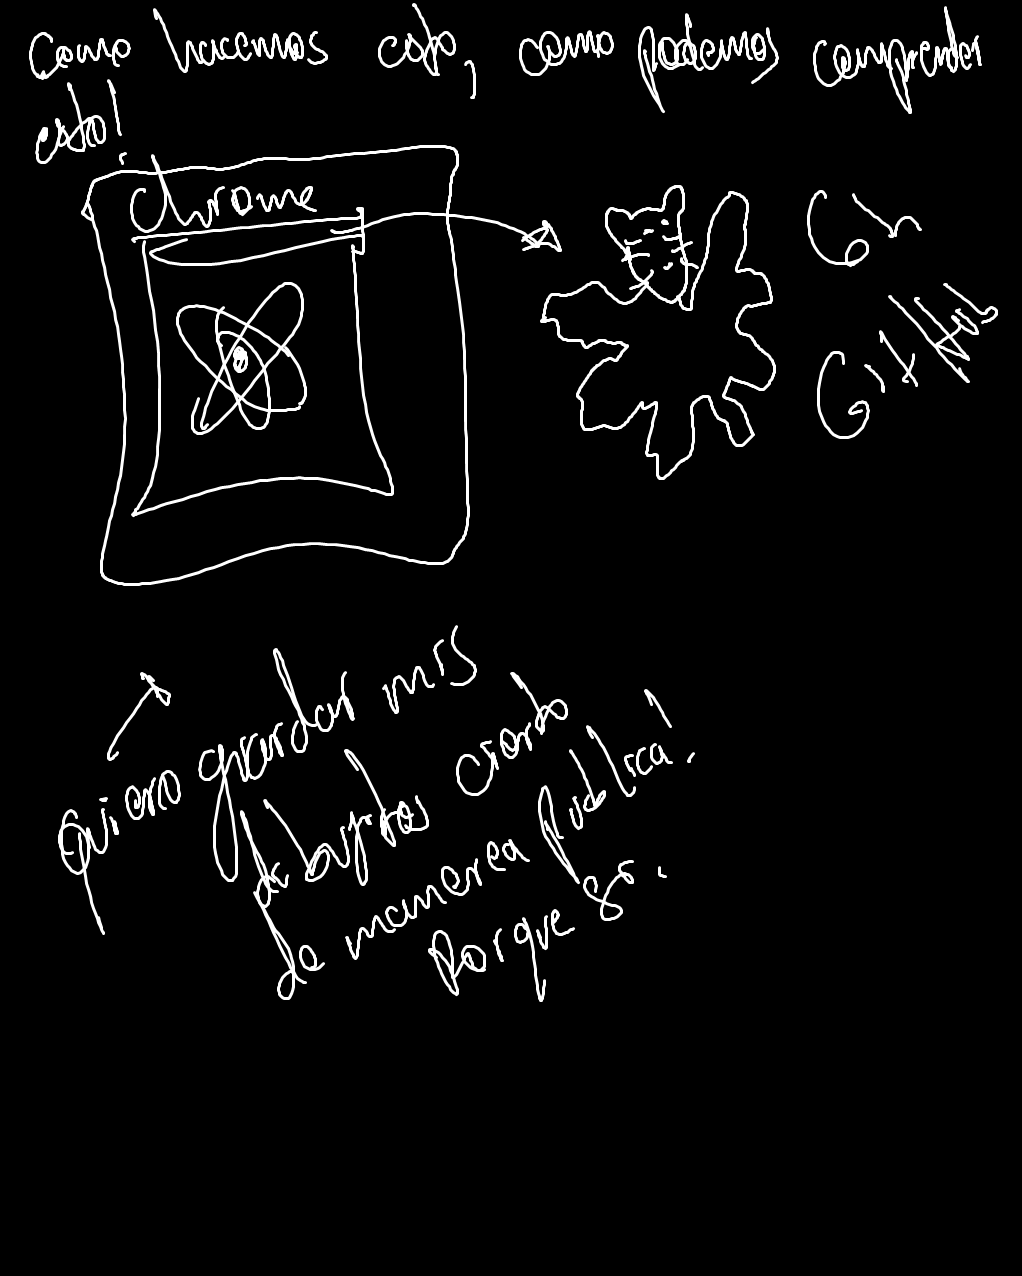 Como hacemos esto, como podemos comprender
esto!
chrome
Gin
GitHub
quiero guardar mis
dibujos cierto
de manerea publica!
porque si.